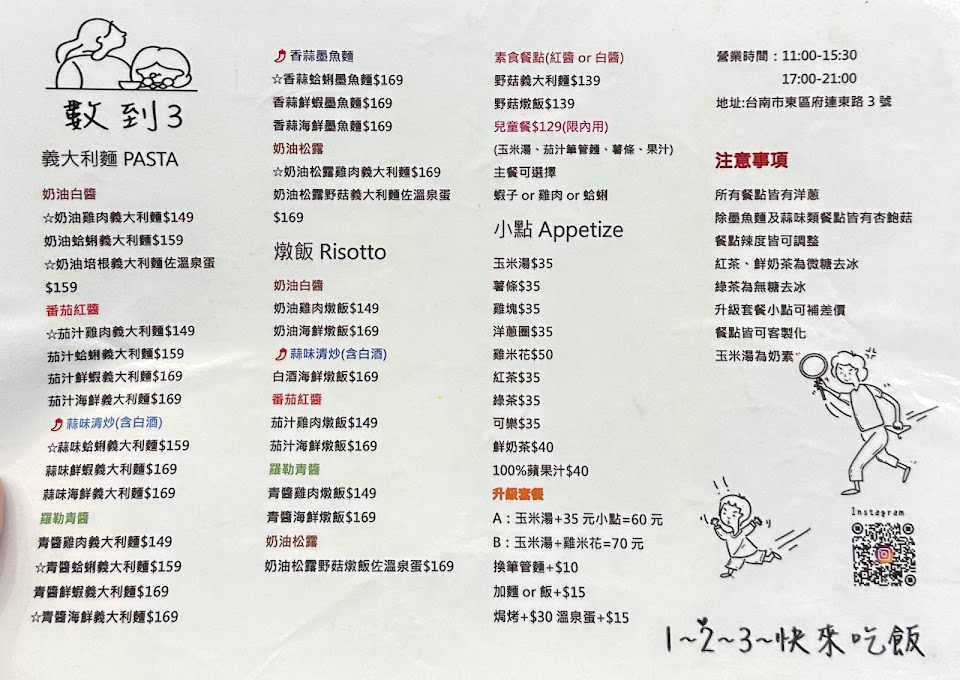 數到3
義大利麵 PASTA
奶油白醬
☆奶油雞肉義大利麵$149
奶油蛤蜊義大利麵$159
☆奶油培根義大利麵佐溫泉蛋
$159
番茄紅醬
☆茄汁雞肉義大利麵$149
茄汁蛤蜊義大利麵$159
茄汁鮮蝦義大利麵$169
茄汁海鮮義大利麵$169
蒜味清炒(含白酒)
☆蒜味蛤蜊義大利麵$159
蒜味鮮蝦義大利麵$169
蒜味海鮮義大利麵$169
羅勒青醬
青醬雞肉義大利麵$149
☆青醬蛤蜊義大利麵$159
青醬鮮蝦義大利麵$169
☆青醬海鮮義大利麵$169
香蒜墨魚麵
☆香蒜蛤蜊墨魚麵$169
香蒜鮮蝦墨魚麵$169
香蒜海鮮墨魚麵$169
奶油松露
☆奶油松露雞肉義大利麵$169
奶油松露野菇義大利麵佐溫泉蛋
$169
燉飯 Risotto
奶油白醬
奶油雞肉燉飯$149
奶油海鮮燉飯$169
蒜味清炒(含白酒)
白酒海鮮燉飯$169
番茄紅醬
茄汁雞肉燉飯$149
茄汁海鮮燉飯$169
羅勒青醬
青醬雞肉燉飯$149
青醬海鮮燉飯$169
奶油松露
奶油松露野菇燉飯佐溫泉蛋$169
素食餐點(紅醬 or 白醬)
野菇義大利麵$139
野菇燉飯$139
兒童餐$129(限內用)
(玉米湯、茄汁筆管麵、薯條、果汁)
主餐可選擇
蝦子 or 雞肉 or 蛤蜊
小點 Appetize
玉米湯$35
薯條$35
雞塊$35
洋蔥圈$35
雞米花$50
紅茶$35
綠茶$35
可樂$35
鮮奶茶$40
100%蘋果汁$40
升級套餐
A：玉米湯+35 元小點=60 元
B：玉米湯+雞米花=70 元
換筆管麵+$10
加麵 or 飯+$15
焗烤+$30 溫泉蛋+$15
營業時間：11:00-15:30
17:00-21:00
地址:台南市東區府連東路 3 號
注意事項
所有餐點皆有洋蔥
除墨魚麵及蒜味類餐點皆有杏鮑菇
餐點辣度皆可調整
紅茶、鮮奶茶為微糖去冰
綠茶為無糖去冰
升級套餐小點可補差價
餐點皆可客製化
玉米湯為奶素
Instagram
1~2~3~快來吃飯